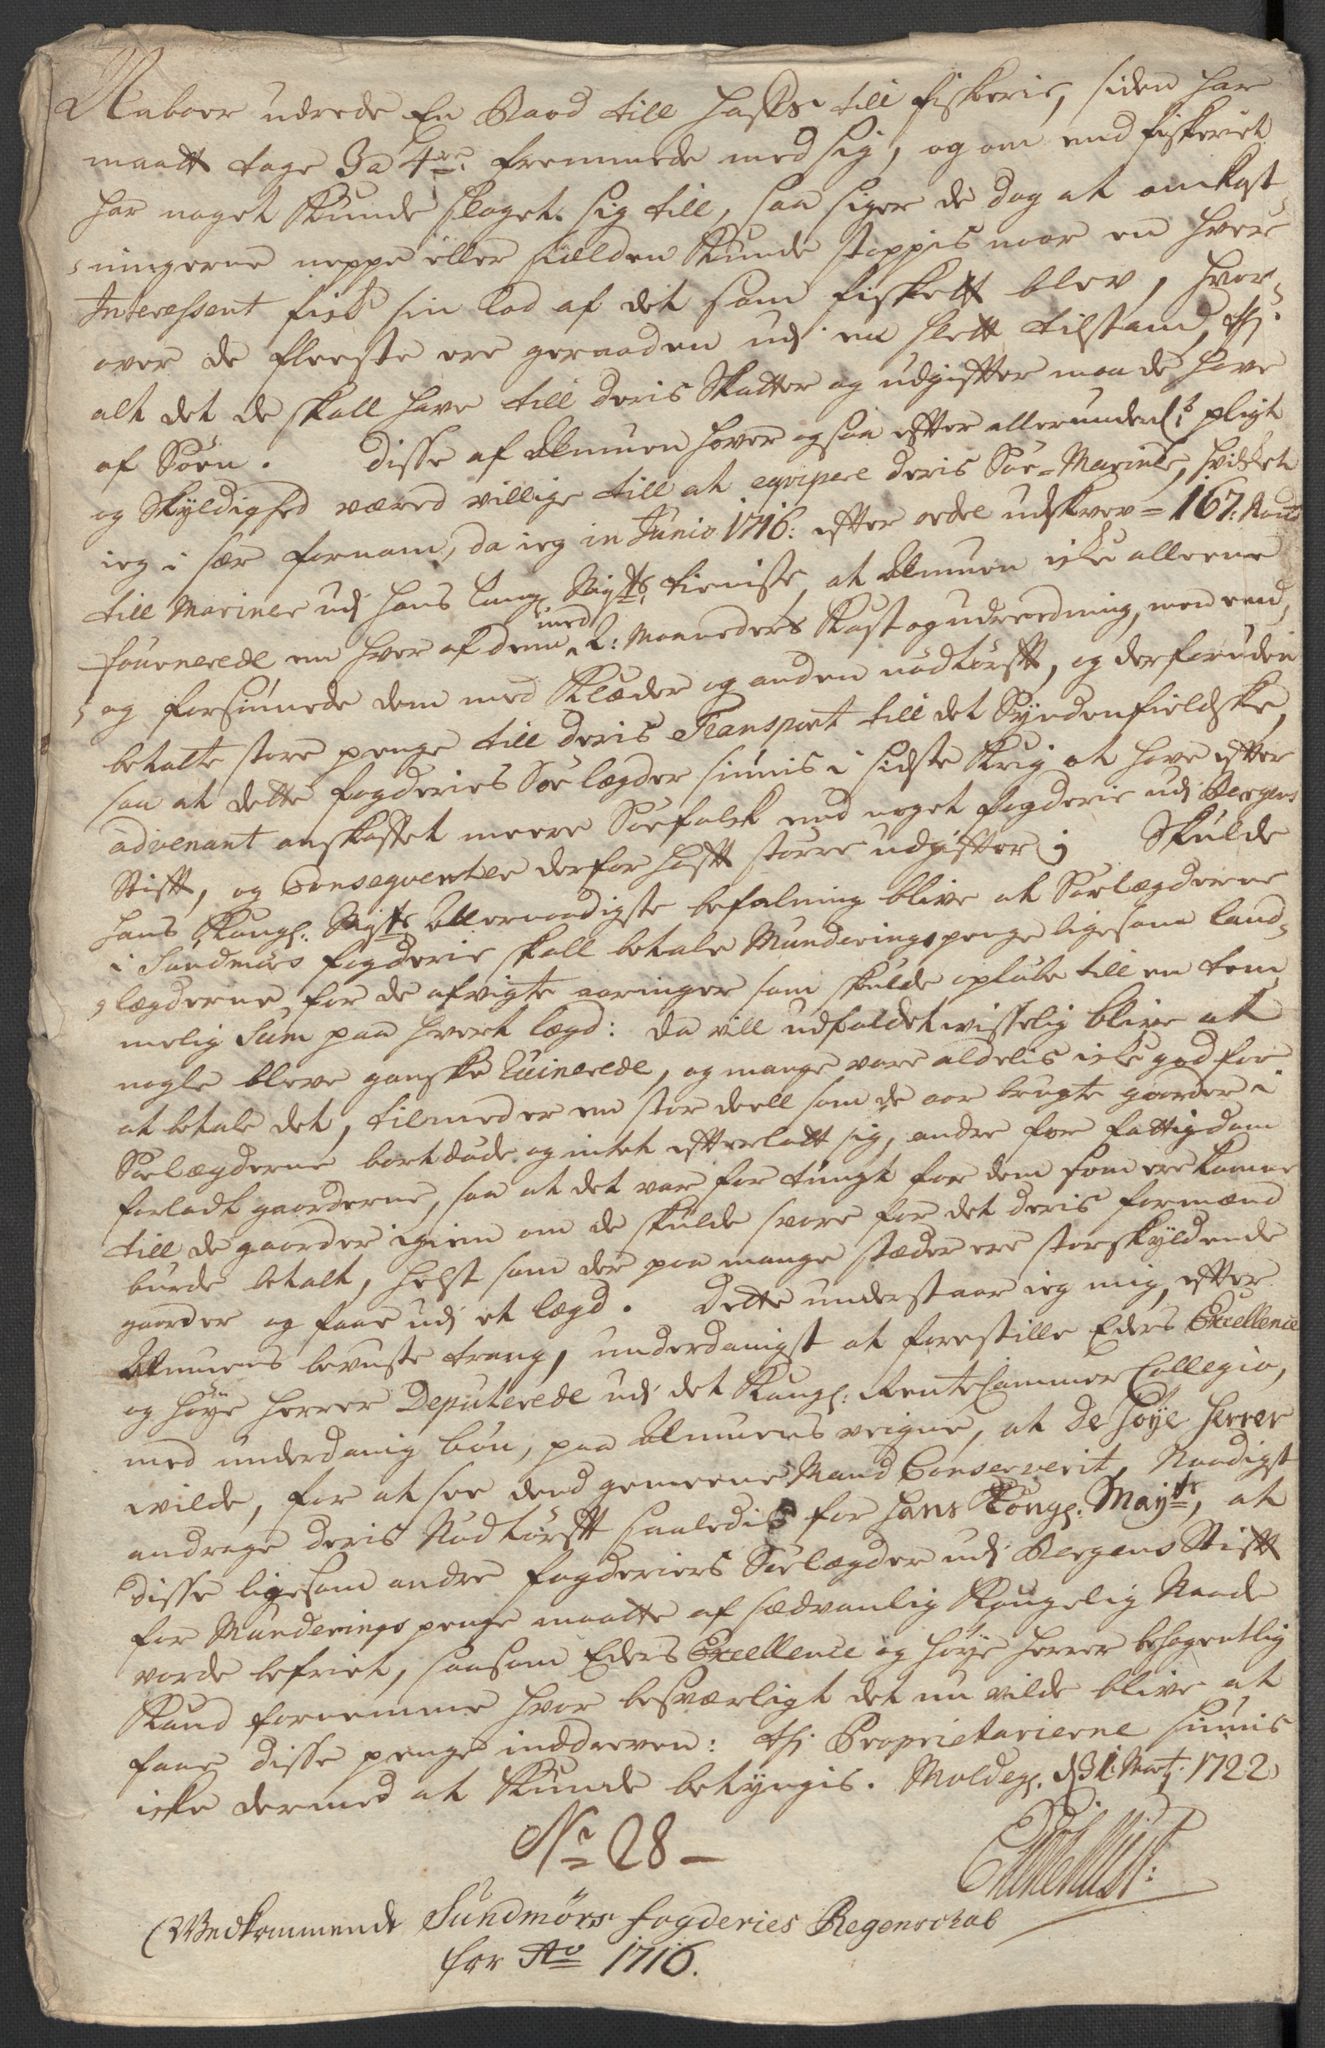 Naboer udrede En Baad till hafs till fiskerie, siden har
maatt tage 3 a 4re: fremmede med sig, og om end fiskeriet
har noget kunde slaget sig till, saa siger de dog at omkost-
ningerne neppe eller sielden kunde stoppis naar en hver
Interessent fick sin lod af det som fiskett blev, hvor-
over de fleeste ere geraaden udj en slett tilstand, thj
alt det de skall have till deris Skatter og udgiffter maa de have
af Söen. Disse af Almuen haver ogsaa effter allerunderd: pligt
og Skyldighed været villige till at eqvipere deris Söe-Mariner, hvilket
ieg i sær fornam, da ieg in Junio 1716: effter ordre udskrev 167: Mand
till Mariner udj Hans Kong: Mayts: tieniste, at Almuen icke alleene
fournerede en hver af dem med 2: Maaneders Kost og udreedning, men end
og forsiunede dem med Klæder og anden nödtörfft, og derforuden
betalte store penge till deris Transport till det Syndenfieldske,
saa at dette fogderies Söelægder siunis i sidste Krig at have effter
advenant anskaffet meere Söefolck end noget fogderie udj Bergens
Stifft, og Conseqventer derfor hafft större udgiffter; Skulde
Hans Kongl: Mayts Allernaadigste befalning blive at Söelægderne
i Sundmörs fogderie skall betale Munderings penge ligesom land-
lægderne, for de afvigte aaringer som skulde oplöbe till en tem-
melig Sum paa hvert lægd: da vill udfaldet wisselig blive at
nogle bleve ganske Ruinerede, og mange vare aldelis icke god for
at betale det, tilmed er en stor deell som de aar brugte gaarder i
Söelægderne bortdöde og intet effterladt sig, andre for fattigdom
forladt gaarderne, saa at det var for tungt for dem som ere komne
till de gaarder igien om de skulde svare for det deris formænd
burde betalt, helst som der paa mange stæder ere storskyldende
gaarder og faae udj et lægd. Dette understaar ieg mig, effter
Almuens bevuste trang, underdanigst at forestille Eders Excellence
og Höye Herrer Deputerede udj det Kongl: RenteCammer Collegio,
med underdanig bön, paa Almuens veigne, at De Höye Herrer
wilde, for at see dend gemeene Mand Conserverit, Naadigst
andrage deris Nödtörfft saaledis for Hans Kongl: Mayts, at
disse ligesom andre fogderiers Söelægder udj Bergens Stifft
for Munderings penge maatte af sædvanlig Kongelig Naade
vorde befriet, saasom Eders Excellence og Höye Herrer behagentlig
Kand fornemme hvor besværligt det nu vilde blive at
faae disse penge inddreven: thj Proprietarierne siunis
icke dermed at kunde betyngis. Moldeg: d 31 Marty: 1722
No 28 –
Vedkommende Sundmörs fogderies Regenschab
for Ao 1716.